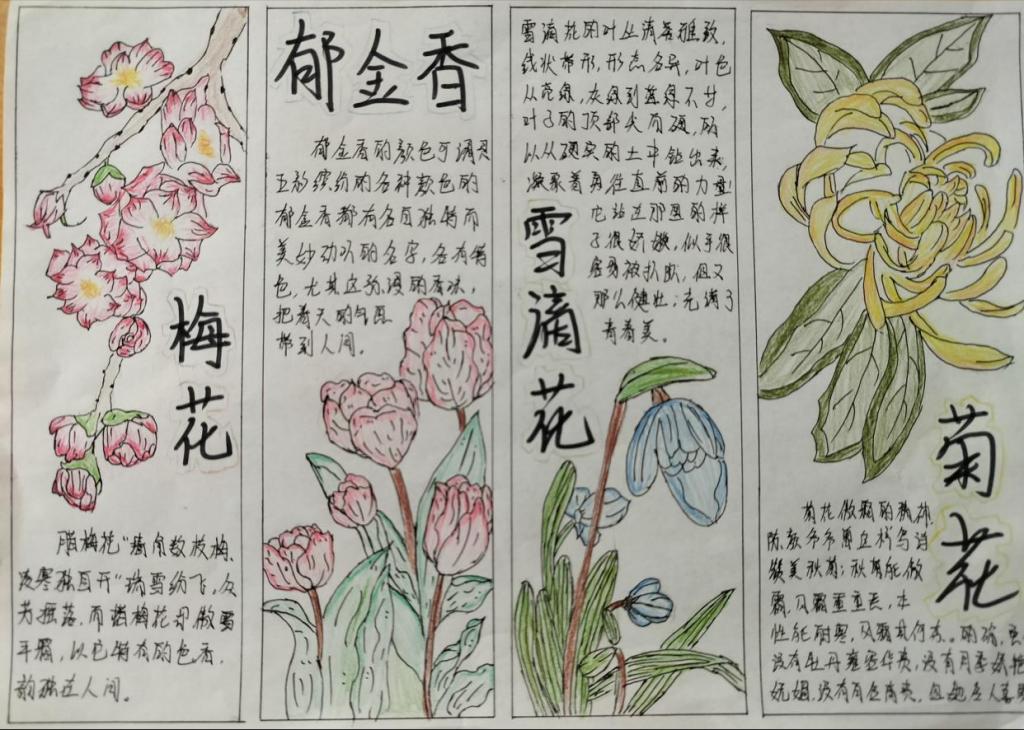 梅花
腊梅花"墙角数枝梅、
凌寒独自开"瑞雪纷飞，众
芳摇落，而腊梅花司傲雪
斗霜，以它特有的色香，
韵独立人间。
郁金香
郁金香的颜色可谓是
五彩缤纷的各种颜色的
郁金香都有各自独特而
美妙动听的名字，各有特
色，尤其这弥漫的香味，
把春天的气息
带到人间。
雪滴花的叶丛清秀雅致，
线状带形，形态各异，叶色
从花绿，灰绿到蓝绿不等，
叶子的顶部尖而硬，所
以从硬实的土中钻出来，
凝聚着勇往直前的力量！
它站在那里的样
子很娇嫩，似乎很
容易被扒趴，但又
那么健壮；充满了
青春美。
雪滴花
菊花
菊花傲霜的精神，
陈毅
赞美秋菊：秋菊能傲
霜，风霜重重恶，本
性能耐寒，风霜其奈何。的确，虽
没有牡丹雍容华贵，没有月季妩
没有百合